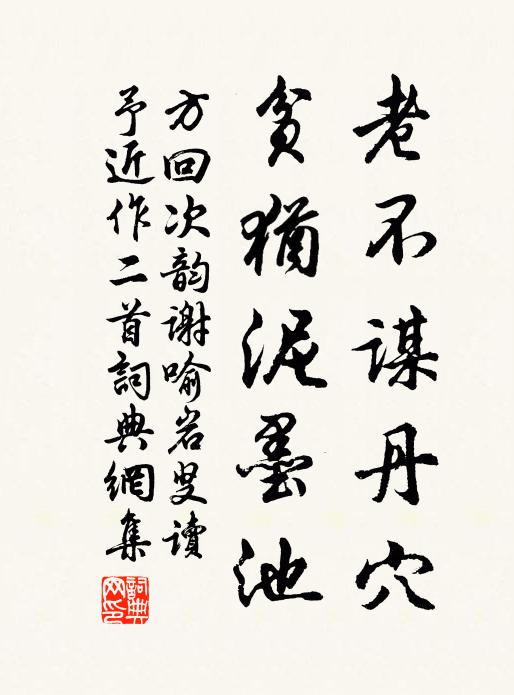 老不谋丹穴
貧猶泥墨池
方回次韵谢喻岩叟讀
予近作二首詞典網集
詞典
网印